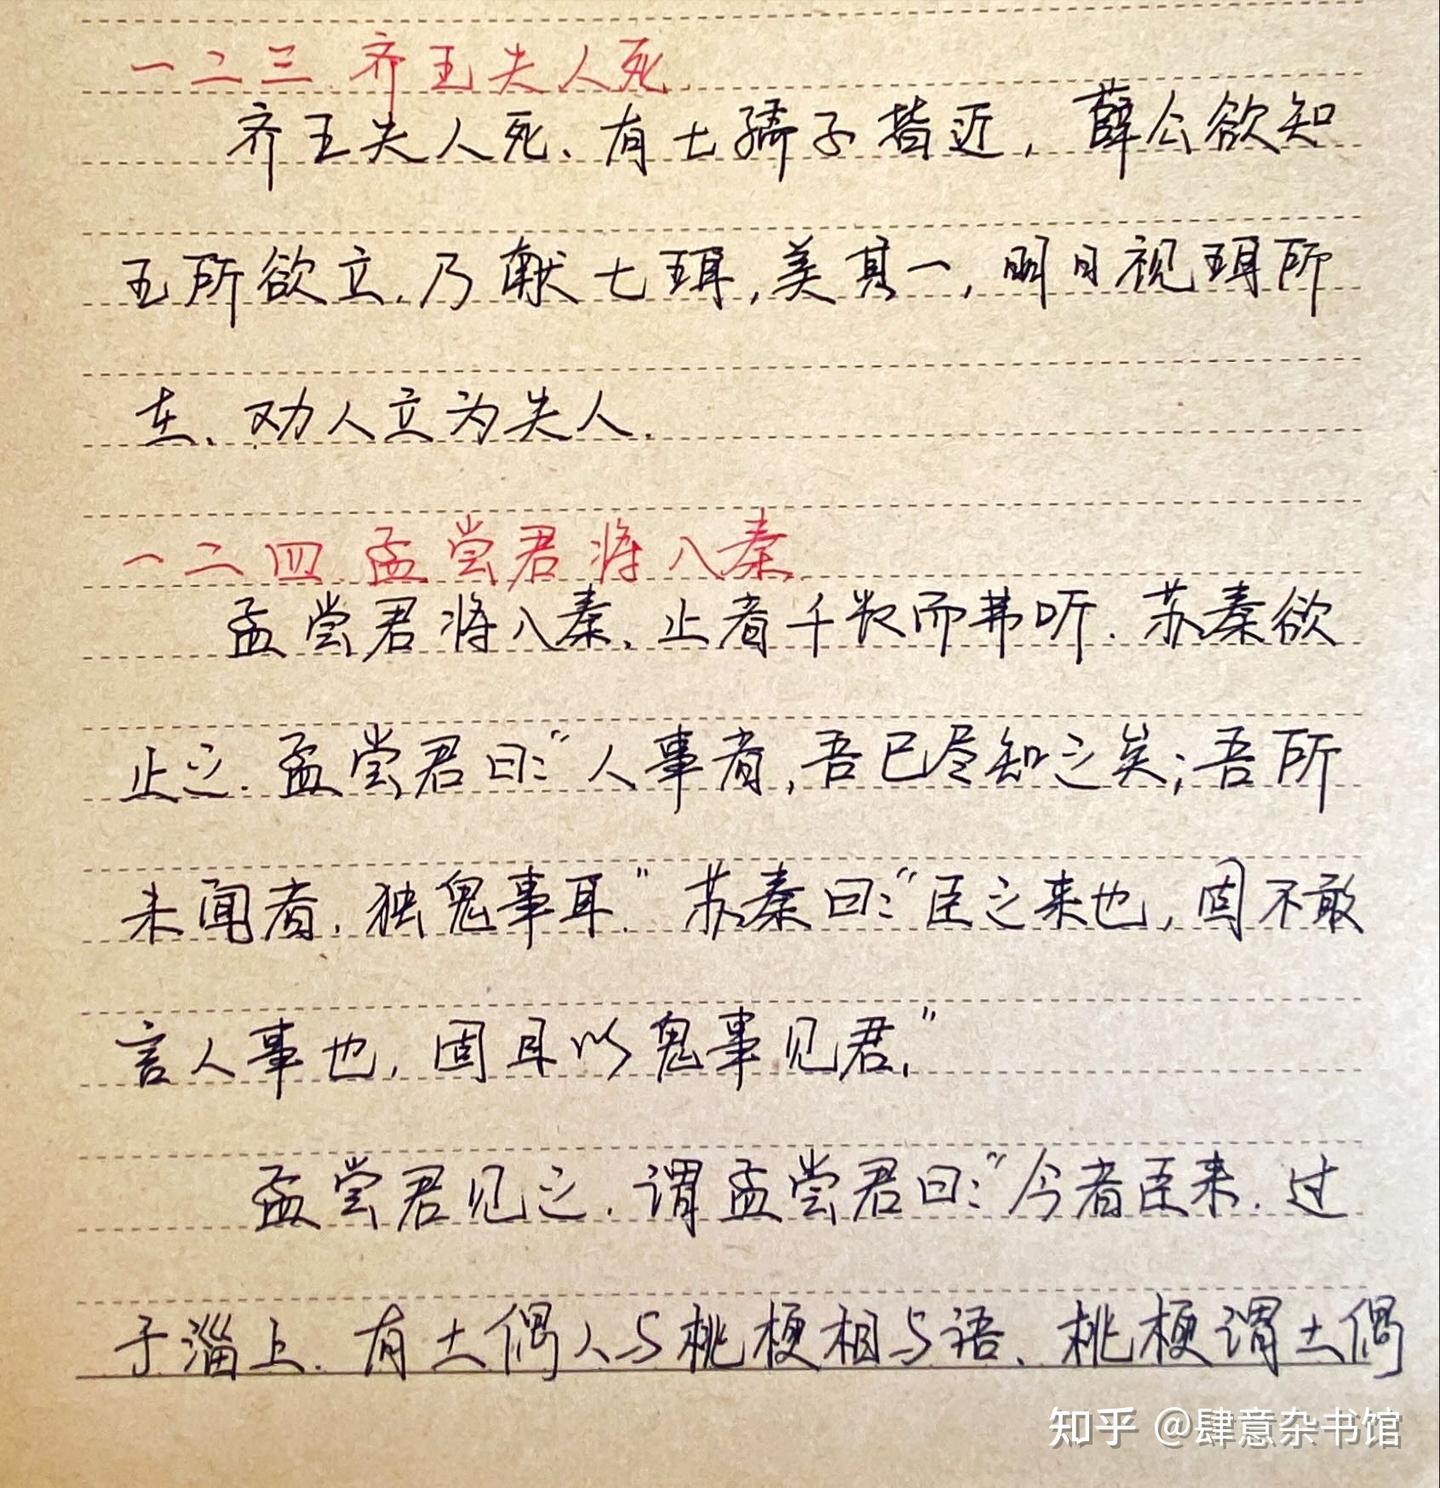 一二三.齐王夫人死.
齐王夫人死、有七孺子皆近，薛公欲知
王所欲立.乃献七珥,美其一,明日视珥所
在、劝人立为夫人.
一二四.孟尝君将入秦.
孟尝君将入秦.止者千数而弗听.苏秦欲
止之.孟尝君曰:“人事者,吾已尽知之矣;吾所
未闻者.独鬼事耳.”苏秦曰:“臣之来也,固不敢
言人事也,固且以鬼事见君.”
孟尝君见之.谓孟尝君曰:“今者臣来.过
于淄上.有土偶人与桃梗相与语、桃梗谓土偶
知乎 @肆意杂书馆